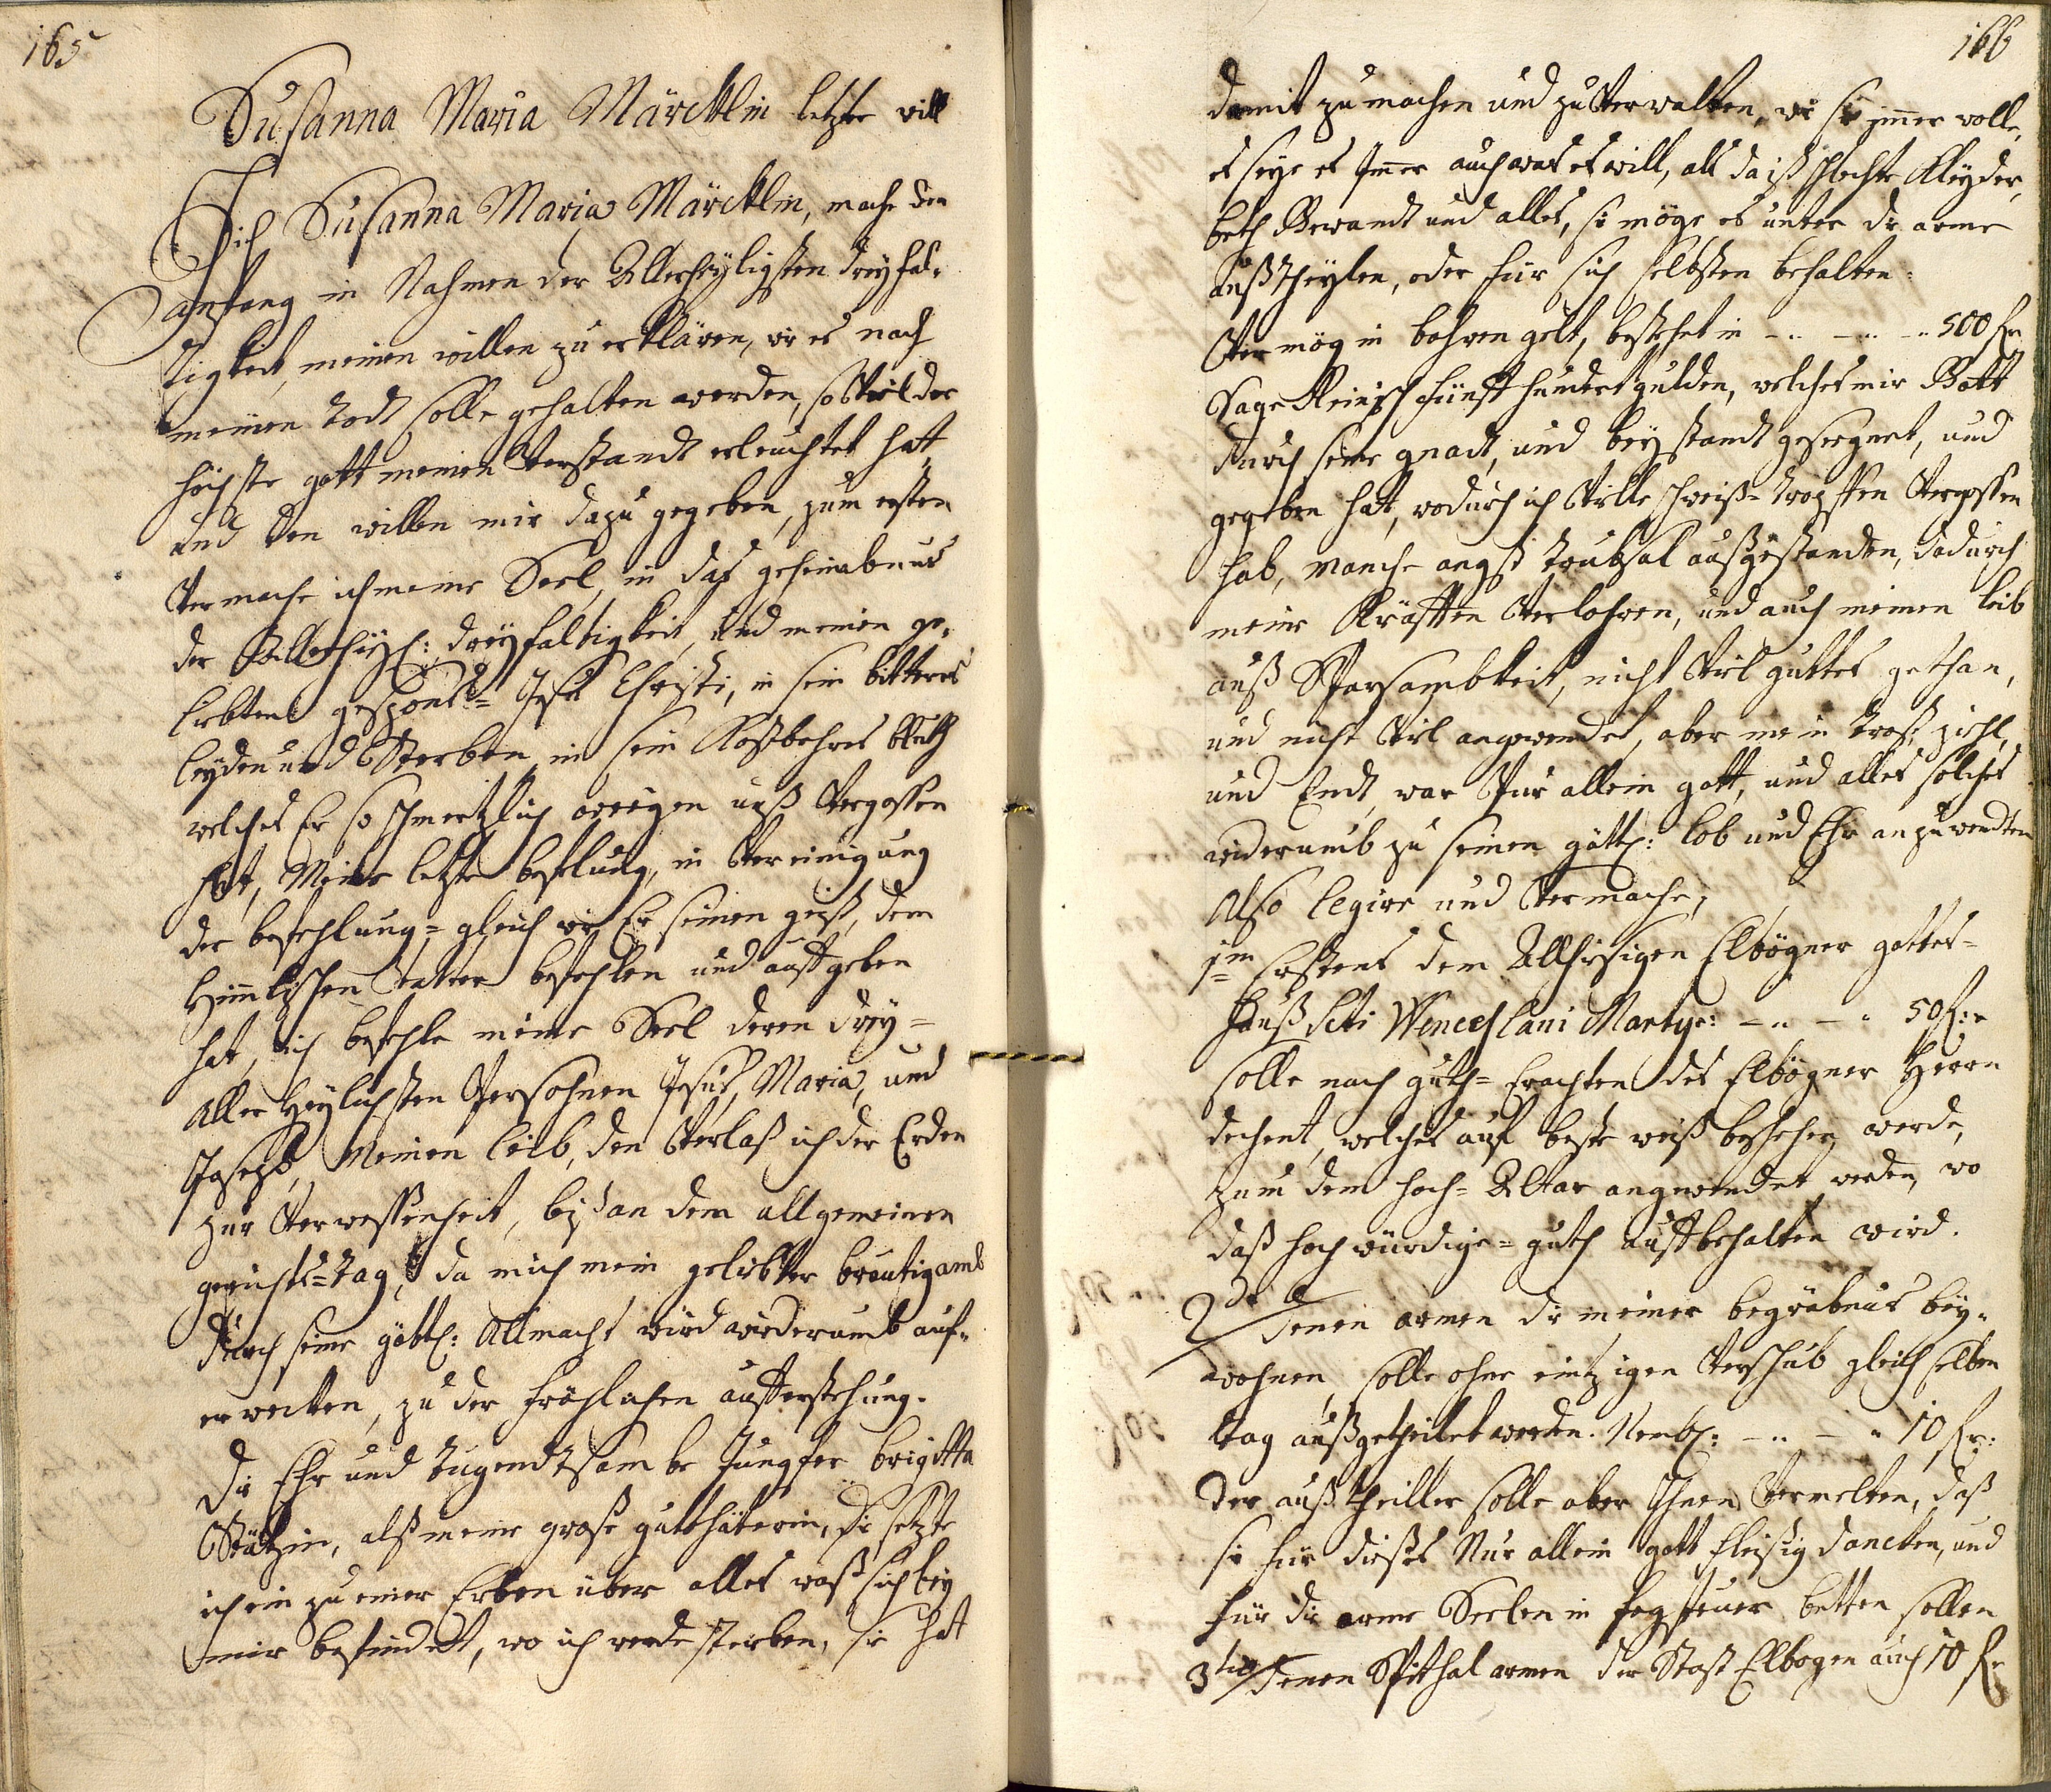 165
Susanna Maria Märcklin letzte will
Ich Susanna Maria Märcklin, mache den
anfang in Nahmen der Allerheyligsten dreyfal-
tigkeit, meinen willen zu erklären, wie es nach
meinen todt solle gehalten werden, so Viel der
höchste gott meinen Verstandt erleuchtet hatt,
und den willen mir dazu gegeben, zum ersten
Vermache ich meine Seel, in das geheimbnus
der Allerheyl: dreyfaltigkeit, und meinen ge-
liebten gespons= Jesu Christi, in sein bitteres
leyden und Sterben, in sein Kostbahres bluth
welches Er so schmertzlich wegen unß Vergossen
hat, Meine letzte befehlung, in Vereinigung
der befehlung= gleich wie Er seinen geist, dem
Himmlischen Vatter befehlen und auffgeben
hat, ich befehle meine Seel denen drey=
Aller Heylichsten Persohnen Jesus, Maria, und
Joseph, Meinen leib, den Verlaß ich der Erden
zur Verwessenheit, biß an dem allgemeinen
gerichts=tag, da mich mein geliebter breutigamb
durch seine göttl: Allmacht wird wiederumb auf-
erwecken, zu der fröhlichen aufferstehung.
die Ehr und tugendtsambe Jungfer brigitta
, alß meine große gutthäterin, die setzte
ich ein zu einer Erben über alles waß sich bey
mir befindet, wo ich werde sterben, sie hatt
166
damit zu machen und zu Verwalten, wie sie immer wolle,
es seye es Immer auch was es will, als da ist schlechte Kleyder,
beth Gewandt und alles, sie möge es unter die arme
außtheylen, oder für sich selbsten behalten:
Vermög in bahren gelt, bestehet in -.. -.. -.. 500 fr
Sage Reinisch fünff hundert gulden, welches mir Gott
durch seine gnadt, und beystandt gesegnet, und
gegeben hat, wodurch ich Viele schweiß=tropffen Vergossen
hab, manche angst trübsal außgestanden, dadurch
meine Kräfften Verlohren, und auch meinen leib
auß Sparsambkeit, nicht Viel guttes gethan,
und nicht Viel angewendet, aber mein trost ziehl,
und Endt, war Nur allein gott, und alles solches
widerumb zu seinen göttl: lob und Ehr anzuwendten
Also legire und Vermache,
1m Erstens dem Allhiesigen Elbögner gottes=
hauß Scti Wenceslani Martyr: -.. -.. 50 fr:
solle nach guth= Erachten des Elbögner Herrn
dechent, welches auf beste weiß bestehen werde,
zum dem hoch= Altar angewendet werden, wo
daß hochwürdige= guth auffbehalten wird.
2do denen armen die meiner begräbnus bey-
wohnen, solle ohne eintzigen Verschub gleich selben
tag außgetheilet werden. Nembl: -.. -.. 10 fr:
Der außtheiller solle aber Ihnen Vermelten, daß
sie für dießes Nur allein gott fleißig dancken, und
für die arme Seelen in fegfeuer betten sollen
3tio denen Spithal armen der Statt Elbogen auch 10 fr